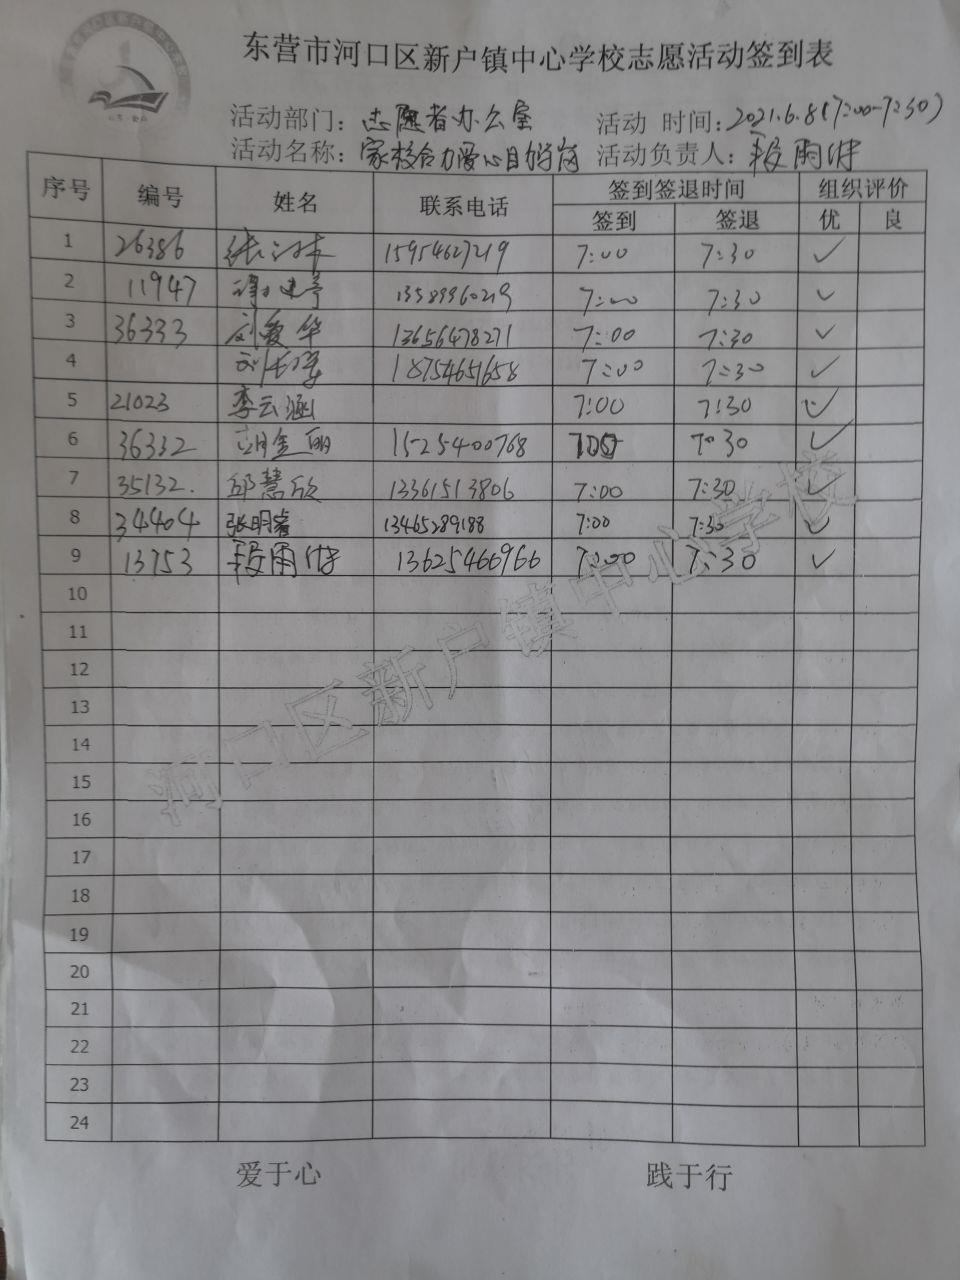 东营市河口区新户镇中心学校志愿活动签到表
活动部门：志愿者办公室 活动 时间：2021.6.8(7:00-7:30)
活动名称：家校合力爱心护岗 活动负责人：
序号 编号 姓名 联系电话 签到签退时间 组织评价
签到 签退 优 良
1 26386 15954627219 7:00 7:30 ✓
2 11947 13589960219 7:00 7:30 ✓
3 36333 刘爱华 13656478271 7:00 7:30 ✓
4 18754651658 7:00 7:30 ✓
5 21023 李云涵 7:00 7:30 ✓
6 36332 胡金丽 15254400768 7:00 7:30 ✓
7 35132. 邱慧欣 13361513806 7:00 7:30 ✓
8 34404 张明睿 13465289188 7:00 7:30 ✓
9 13753 13625466966 7:00 7:30 ✓
10
11
12
13
14
15
16
17
18
19
20
21
22
23
24
河口区新户镇中心学校
爱于心 践于行